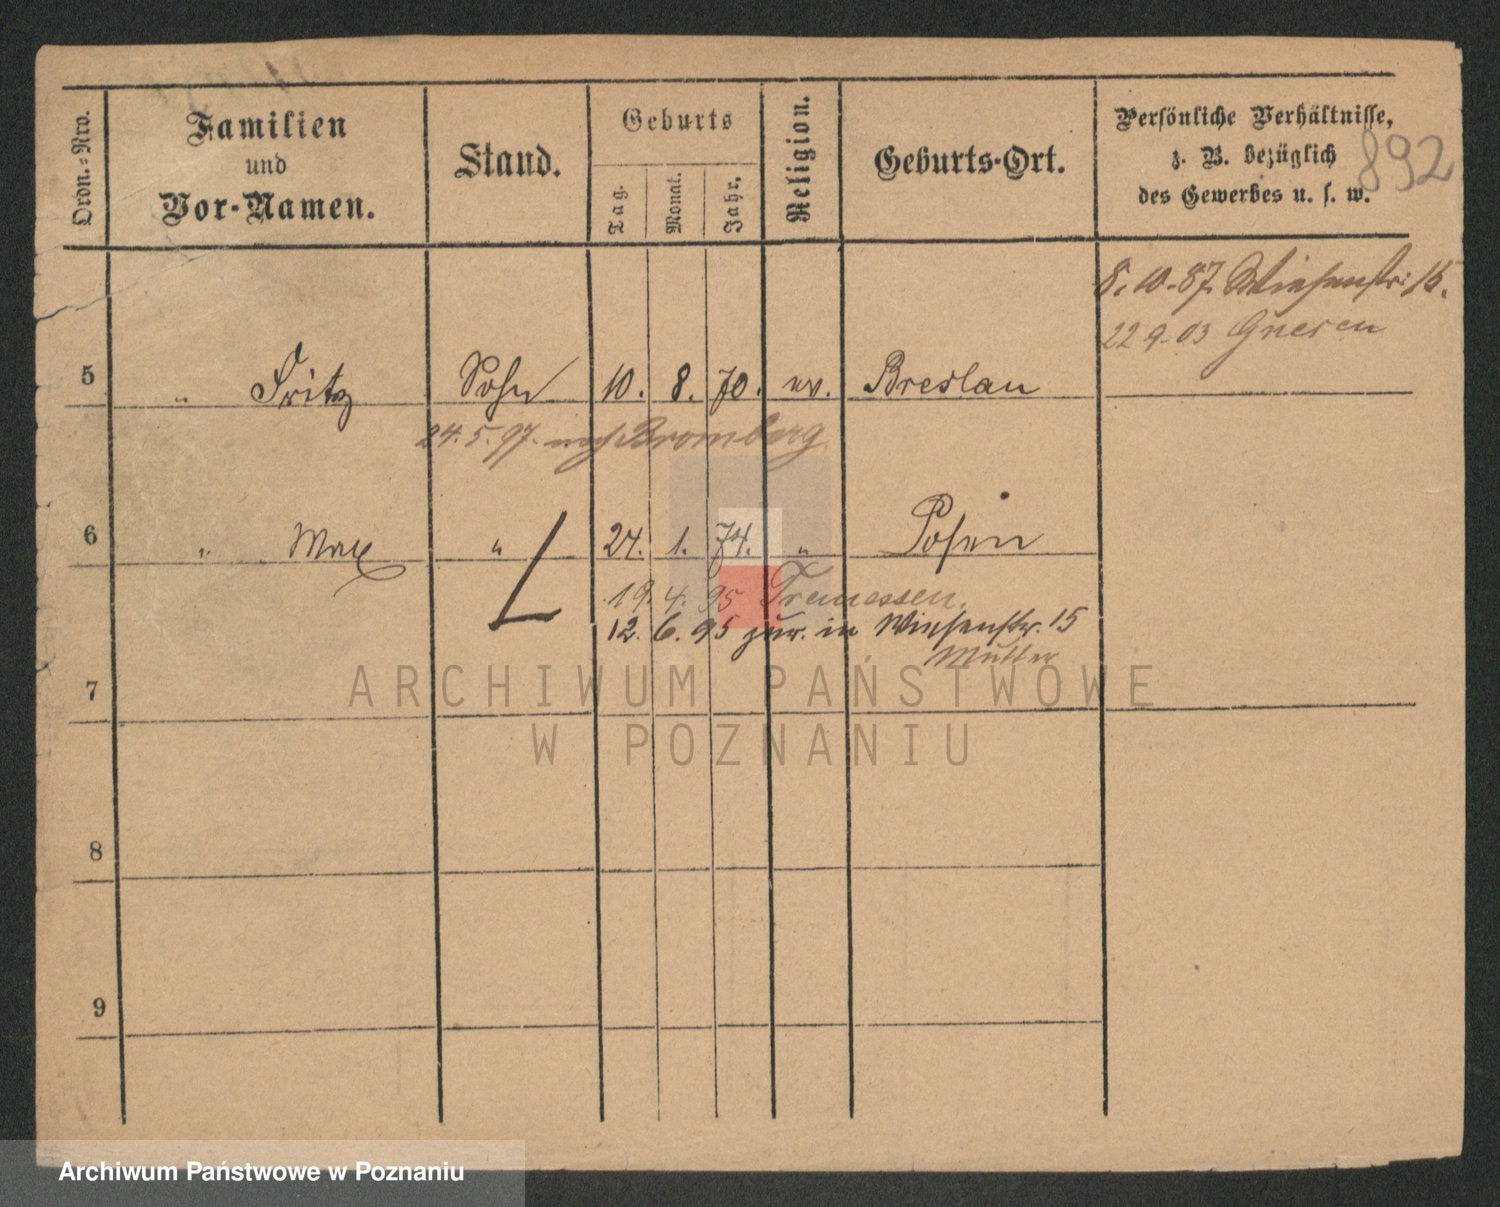 Ordn.-Nro.
Familien
und
Vor-Namen.
Stand.
Geburts
Tag.
Monat.
Jahr.
Religion.
Geburts-Ort.
Persönliche Verhältnisse,
z. B. bezüglich
des Gewerbes u. s. w.
892
8. 10. 87. Wiesenstr: 15.
22 9. 03 Gnesen
5 " Fritz Sohn 10. 8. 70. ev. Breslau
24. 5. 97. nach Bromberg
6 " Max " 24. 1. 74. " Posen
19. 4. 95 Tremessen.
12. 6. 95 zur. in Wiesenstr. 15
Mutter
7
8
9
ARCHIWUM PAŃSTWOWE
W POZNANIU
Archiwum Państwowe w Poznaniu